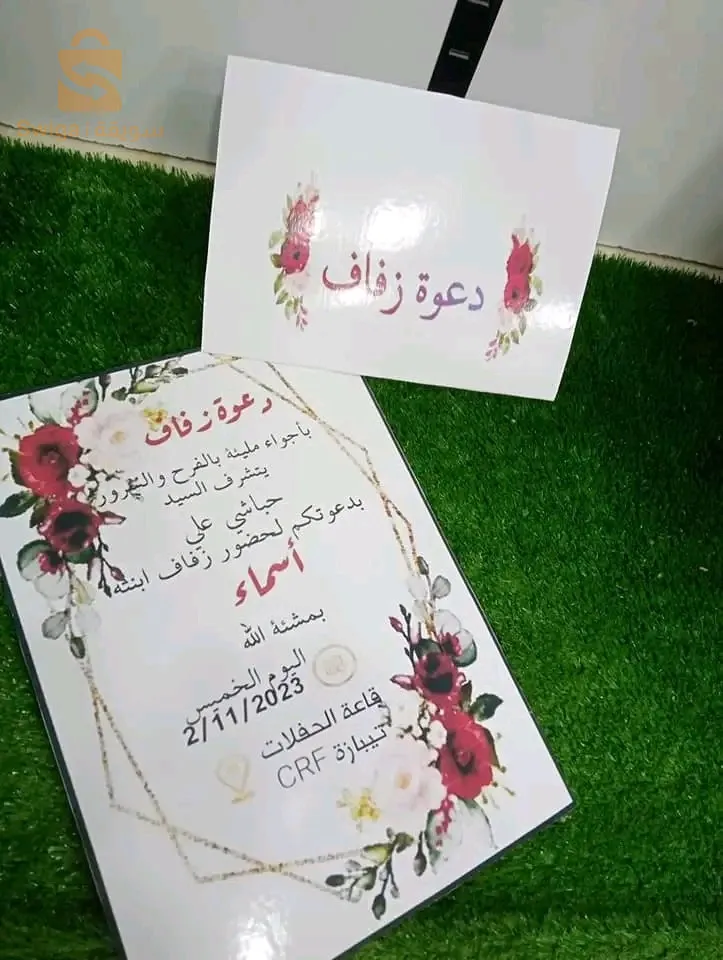 دعوة زفاف
دعوة زفاف
بأجواء مليئة بالفرح والسرور
يتشرف السيد
حباشي علي
بدعوتكم لحضور زفاف ابنته
أسماء
بمشئة الله
اليوم الخميس
2/11/2023
قاعة الحفلات
تيبازة CRF